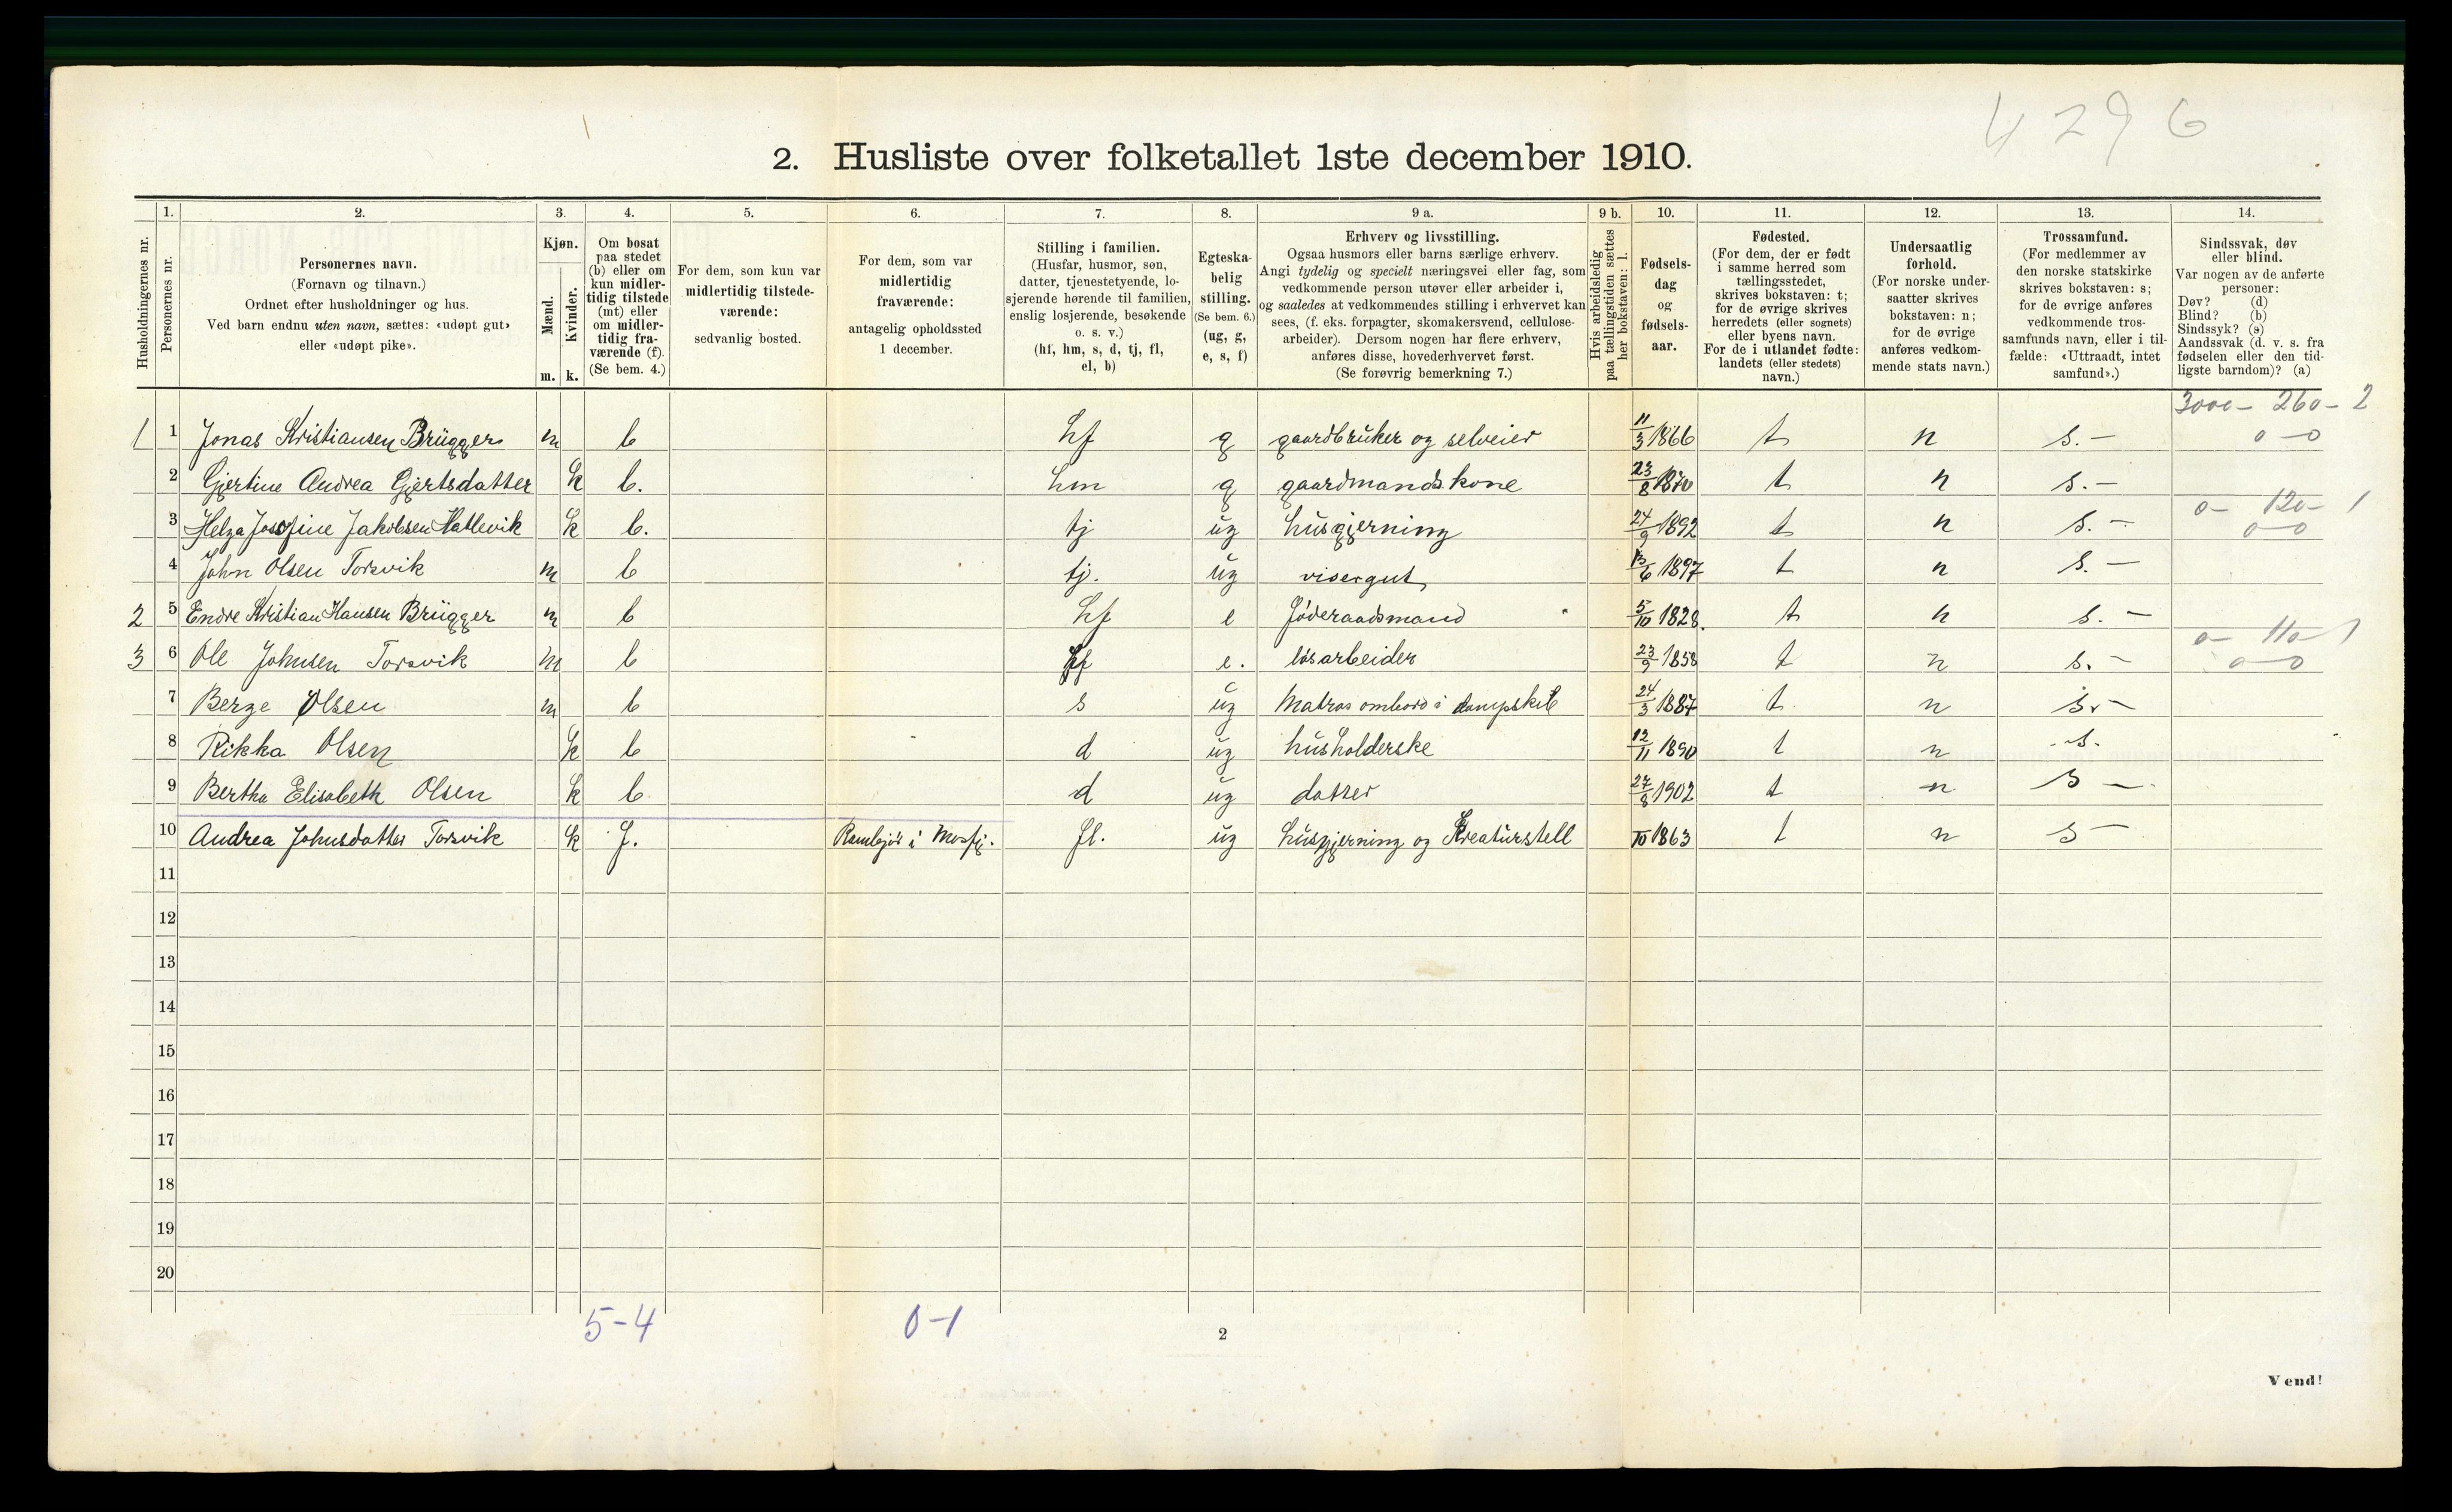 4296
2. Husliste over folketallet 1ste december 1910.
Husholdningernes nr.
1.
Personernes nr.
2.
Personernes navn.
(Fornavn og tilnavn.)
Ordnet efter husholdninger og hus.
Ved barn endnu uten navn, sættes: «udøpt gut»
eller «udøpt pike».
3.
Kjøn.
Mænd.
Kvinder.
m. k.
4.
Om bosat
paa stedet
(b) eller om
kun midler-
tidig tilstede
(mt) eller
om midler-
tidig fra-
værende (f).
(Se bem. 4.)
5.
For dem, som kun var
midlertidig tilstede-
værende:
sedvanlig bosted.
6.
For dem, som var
midlertidig
fraværende:
antagelig opholdssted
1 december.
7.
Stilling i familien.
(Husfar, husmor, søn,
datter, tjenestetyende, lo-
sjerende hørende til familien,
enslig losjerende, besøkende
o. s. v.)
(hf, hm, s, d, tj, fl,
el, b)
8.
Egteska-
belig
stilling.
(Se bem. 6.)
(ug, g,
e, s, f)
9 a.
Erhverv og livsstilling.
Ogsaa husmors eller barns særlige erhverv.
Angi tydelig og specielt næringsvei eller fag, som
vedkommende person utøver eller arbeider i,
og saaledes at vedkommendes stilling i erhvervet kan
sees, (f. eks. forpagter, skomakersvend, cellulose-
arbeider). Dersom nogen har flere erhverv,
anføres disse, hovederhvervet først.
(Se forøvrig bemerkning 7.)
9 b.
Hvis arbeidsledig
paa tællingstiden sættes
her bokstaven: l.
10.
Fødsels-
dag
og
fødsels-
aar.
11.
Fødested.
(For dem, der er født
i samme herred som
tællingsstedet,
skrives bokstaven: t;
for de øvrige skrives
herredets (eller sognets)
eller byens navn.
For de i utlandet fødte:
landets (eller stedets)
navn.)
12.
Undersaatlig
forhold.
(For norske under-
saatter skrives
bokstaven: n;
for de øvrige
anføres vedkom-
mende stats navn.)
13.
Trossamfund.
(For medlemmer av
den norske statskirke
skrives bokstaven: s;
for de øvrige anføres
vedkommende tros-
samfunds navn, eller i til-
fælde: «Uttraadt, intet
samfund».)
14.
Sindssvak, døv
eller blind.
Var nogen av de anførte
personer:
Døv? (d)
Blind? (b)
Sindssyk? (s)
Aandssvak (d. v. s. fra
fødselen eller den tid-
ligste barndom)? (a)
3000 – 260 – 2
1 1 Jonas Kristiansen Brügger m b hf g gaardbruker og selveier 11/3 1866 t n s. – 0 – 0
2 Gjertine Andrea Gjertsdatter k b. hm g gaardmandskone 23/8 1870 t n s. –
0 – 120 – 1
3 Helga Josefine Jakobsen Hatlevik k b. tj ug husgjerning 24/9 1892 t n s. – 0 – 0
4 John Olsen Torsvik m b tj. ug visergut 13/6 1897 t n s. –
2 5 Endre Kristian Hansen Brügger m b hf e föderaadsmand 5/10 1828. t n s. –
0 – 110 – 1
3 6 Ole Johnsen Torsvik m b hf e. lösarbeider 23/9 1858 t n s. – 0 – 0
7 Berge Olsen m b s ug Matros ombord i dampskib 24/3 1887 t n s. –
8 Rikka Olsen k b d ug husholderske 12/11 1890 t n s.
9 Bertha Elisabeth Olsen k b d ug datter 27/8 1902 t n s –
10 Andrea Johnsdatter Torsvik k f. i fl. ug husgjerning og Kreaturstell 10 1863 t n s –
11
12
13
14
15
16
17
18
19
20
5–4 0–1
2
Vend!